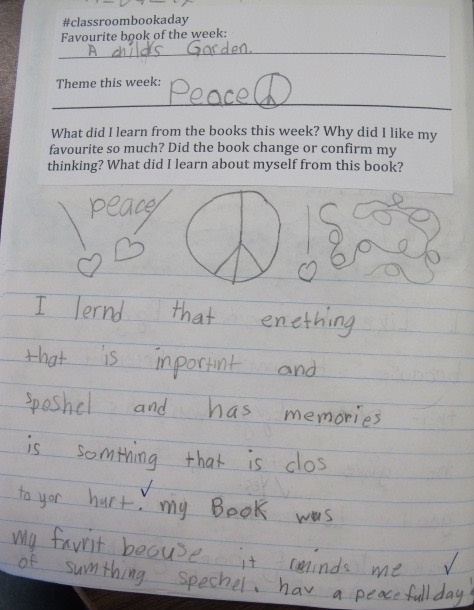 #classroombookaday
Favourite book of the week:
A child's Garden.
Theme this week: Peace
What did I learn from the books this week? Why did I like my
favourite so much? Did the book change or confirm my
thinking? What did I learn about myself from this book?
peace
I lernd that enething
that is inportint and
speshel and has memories
is somthing that is clos
to yor hurt. my Book was
my favrit becuse it reminds me
of sumthing spechel. hav a peacefull day!